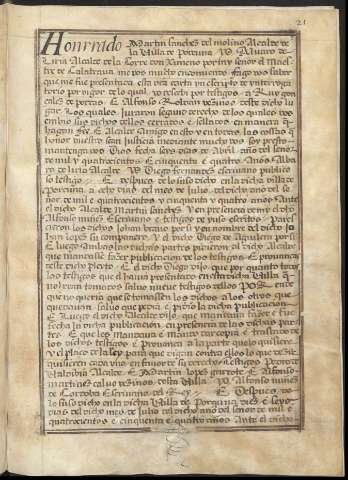 21
Honrrado Martin sanches del molino Alcalde de
la Villa de Porcuna. Yo Alvaro de
Liria Alcalde de la Torre don Ximeno por my señor el maes
tre de Calatrava me vos mucho encomiendo fago vos saber
que me fue presentada esta otra carta en escripto de ynterroga
torio por vigor de lo qual yo resceby por testigos a Ruy gon
çales de porras. E Alfonso Roldan vezinos deste dicho lu
gar. Los quales juraron segund derecho de los quales vos
embio sus dichos cerrados e sellados en manera q
hagan fee. E Alcalde Amigo en esto y en todas las cosas q
a honor vuestro sean justicia mediante mucho vos soy presto
mantengavos Dios fecha seys dias de Abril año del señor
de mil y quatrocientos E cinquenta e quatro Años Alba
ro de liria Alcalde. Yo Diego fernandes escriuano publico
so testigo. E Despues de lo suso dicho en la dicha villa de
Porcuna a ocho dias del mes de Julio del dicho año del se
ñor de mil e quatrocientos y cinquenta y quatro años Ante
el dicho Alcalde Martin sanches. Y en presencia de my el dicho
Alfonso nuñes Escriuano e testigos de yuso escritos. Pares
cieron los dichos Johan bravo por si y en nombre del dicho Jo
han lopes su compañero. Y el dicho Diego de Aguilera por si
E luego Ambas las dichas partes pidieron al dicho Alcalde
que mandasse fazer publicacion de los testigos. E prouança
deste dicho pleyto. E el dicho Diego dijo que por quanto todos
los testigos que el havia presentado en esta dicha Villa q
no heran tomados salvo nueve testigos dellos POR ende
que no queria que se tomassen los dichos a los otros que
quedauan salvo que pedia e pidio la dicha publicacion
E luego el dicho Alcalde dijo que mandaua fazer e fue
fecha la dicha publicacion en presencia de las dichas partes
E que les mandaua e mando dar copia e traslado de
los dichos testigos e Prouança a la parte que lo quisiere
y el plazo de la ley para que digan contra ellos lo que dezir
quisieren cada vno en fauor de su derecho. testigos Pedro de
Valdivia Alcalde. E Martin lopes garrote. E Alfonso
martines calvo vezinos desta Villa. Yo Alfonso nuñes
de Cordoba Escriuano del Rey. E Despues de
lo suso dicho en la dicha Villa de Porcuna dies e seys
dias del dicho mes de Julio del dicho año del señor de mil e
quatrocientos e cinquenta e quatro años Ante el dicho